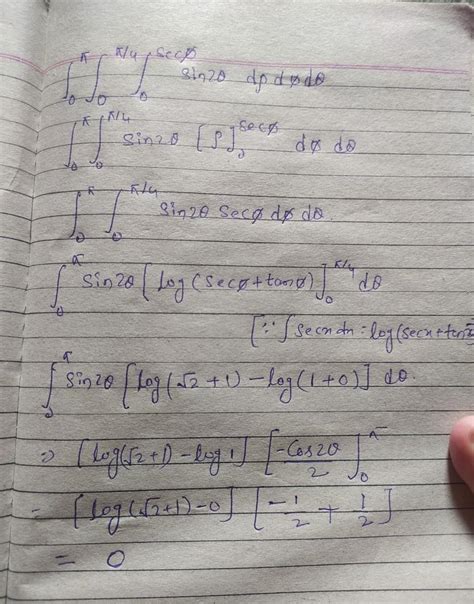 ∫₀^π ∫₀^π/4 ∫₀^secϕ sin2θ dρ dϕ dθ
∫₀^π ∫₀^π/4 sin2θ [ρ]₀^secϕ dϕ dθ
∫₀^π ∫₀^π/4 sin2θ secϕ dϕ dθ
∫₀^π sin2θ [log(secϕ+tanϕ)]₀^π/4 dθ
[∵ ∫secx dx = log(secx+tanx)]
∫₀^π sin2θ [log(√2+1) - log(1+0)] dθ.
⇒ [log(√2+1) - log1] [-cos2θ/2]₀^π
- [log(√2+1)-0] [-1/2 + 1/2]
= 0